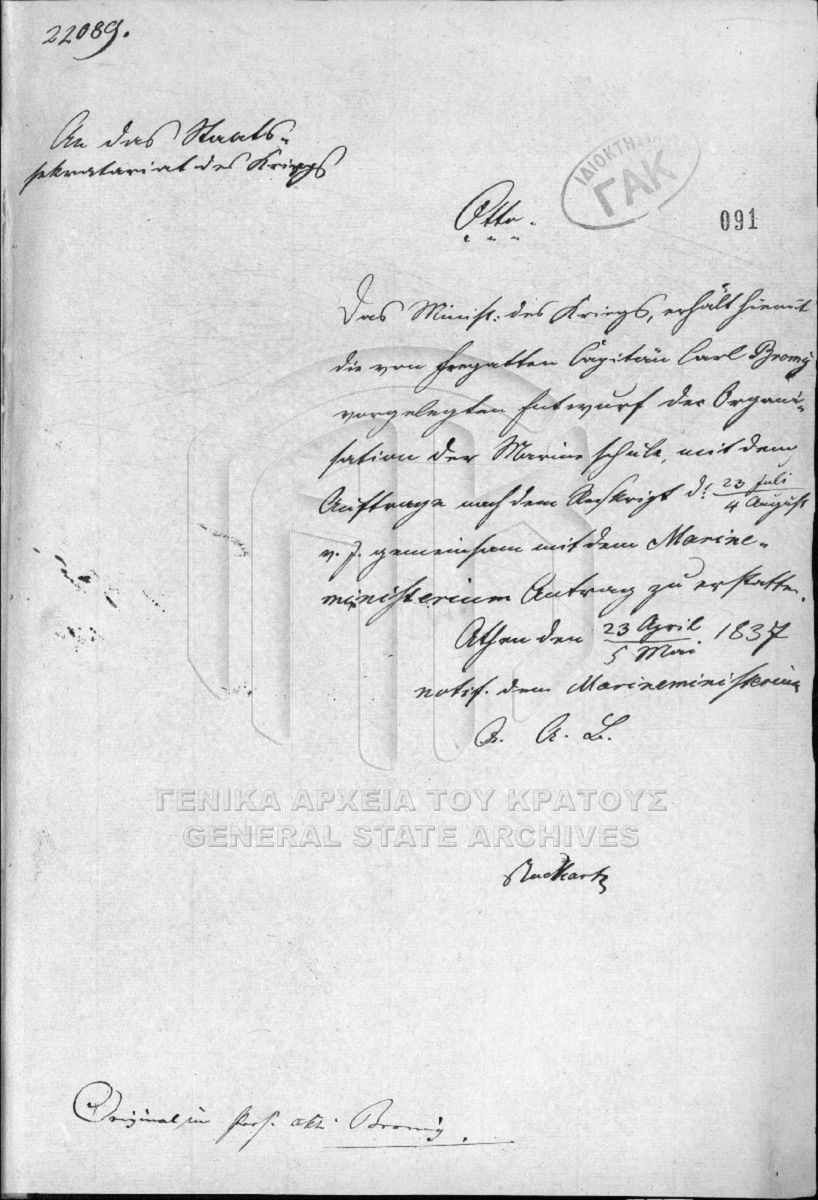 22089.
An das Staats-
sekretariat des Kriegs
ΙΔΙΟΚΤΗΣΙΑ
ΓΑΚ
Otto.
091
Das Minist: des Kriegs, erhält hiemit
die von Fregatten Capitän Carl Bromÿ
vorgelegten Entwurf der Organi-
sation der Marine schule, mit dem
Auftrage nach dem Reskript d: 23 Juli / 4 August
v. J. gemeinsam mit dem Marine-
ministerium Antrag zu erstatten.
Athen den 23 April / 5 Mai 1837
notif. dem Marineministerium
A. L.
ΓΕΝΙΚΑ ΑΡΧΕΙΑ ΤΟΥ ΚΡΑΤΟΥΣ
GENERAL STATE ARCHIVES
Rudhart
Original in Pers. akt: Bromÿ.